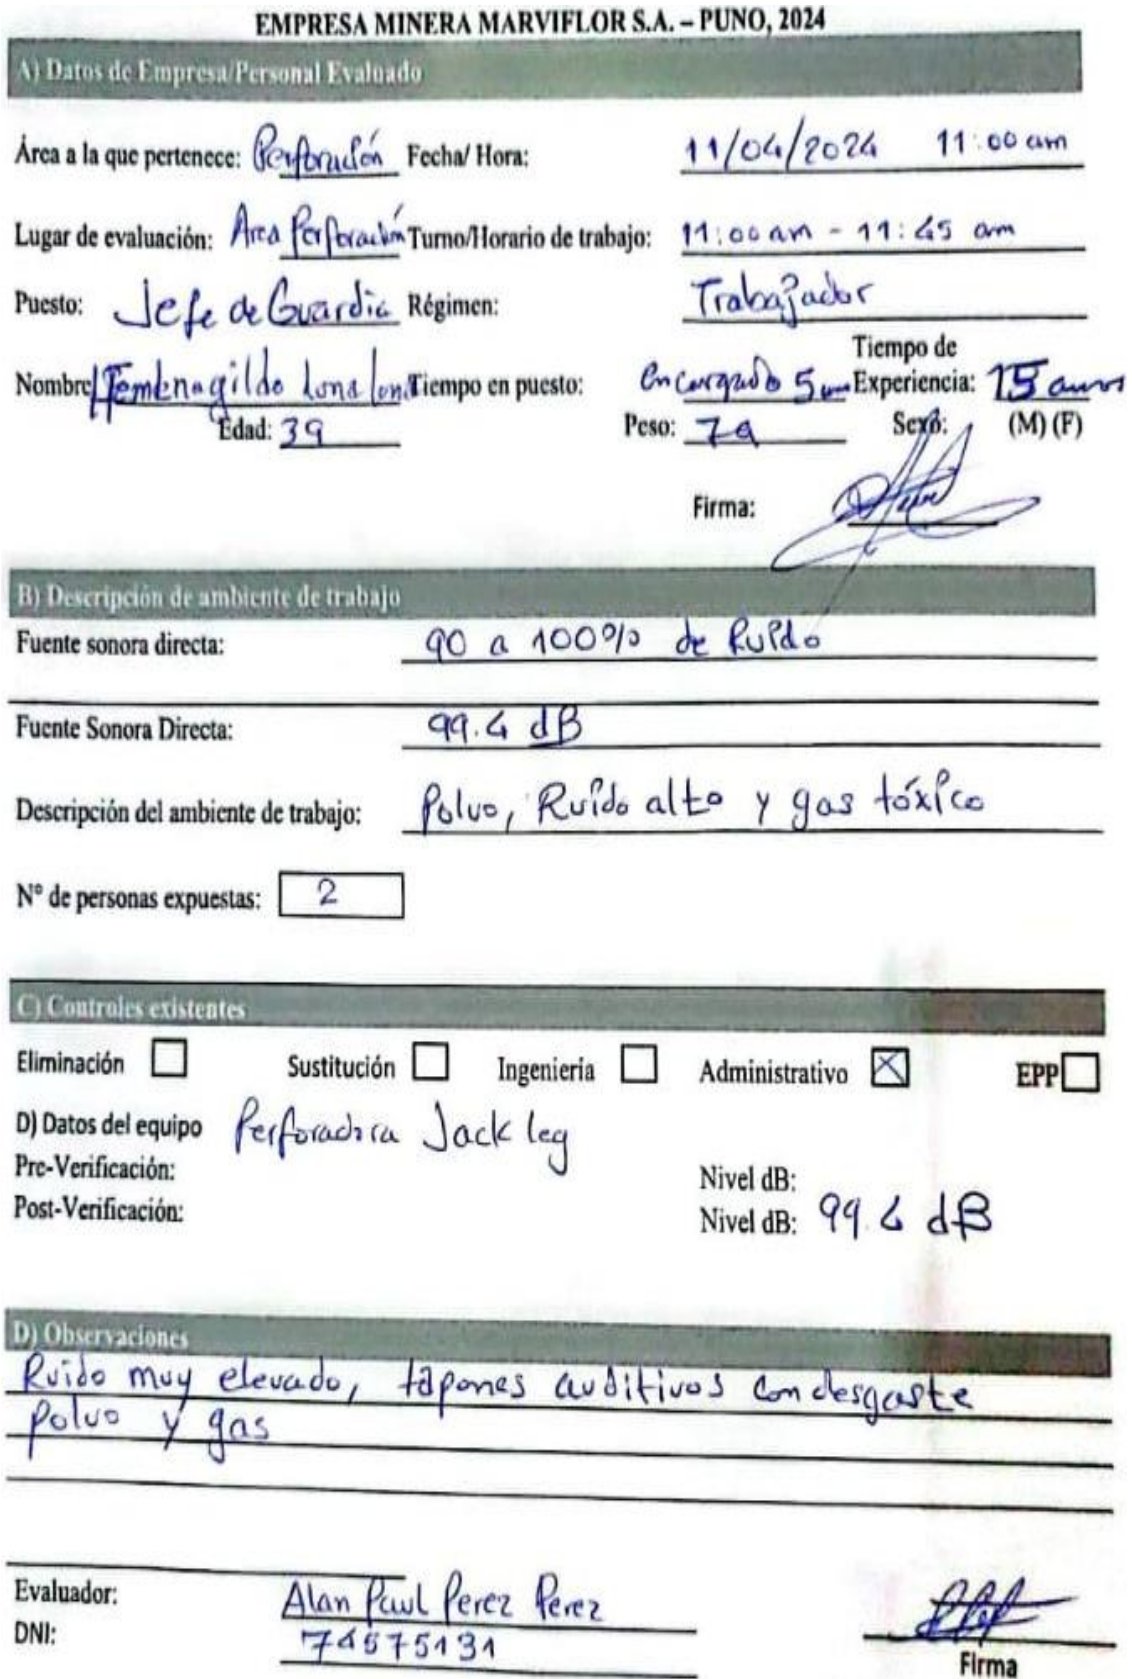 EMPRESA MINERA MARVIFLOR S.A. – PUNO, 2024
A) Datos de Empresa/Personal Evaluado
Área a la que pertenece: Perforación Fecha/ Hora: 11/04/2024 11:00 am
Lugar de evaluación: Area Perforación Turno/Horario de trabajo: 11:00 am - 11:45 am
Puesto: Jefe de Guardia Régimen: Trabajador
Tiempo de
Nombre Luna Tiempo en puesto: encargado 5 Experiencia: 15
Edad: 39 Peso: Sexo: (M) (F)
Firma:
B) Descripción de ambiente de trabajo
Fuente sonora directa: 90 a 100% de Ruido
Fuente Sonora Directa: 99.4 dB
Descripción del ambiente de trabajo: Polvo, Ruido alto y gas tóxico
N° de personas expuestas: 2
C) Controles existentes
Eliminación Sustitución Ingenieria Administrativo EPP
D) Datos del equipo Perforadora Jack leg
Pre-Verificación: Nivel dB:
Post-Verificación: Nivel dB: 99.4 dB
D) Observaciones
Ruido muy elevado, tapones auditivos con desgaste
polvo y gas
Evaluador: Alan Paul Perez Perez
DNI: 74575131
Firma